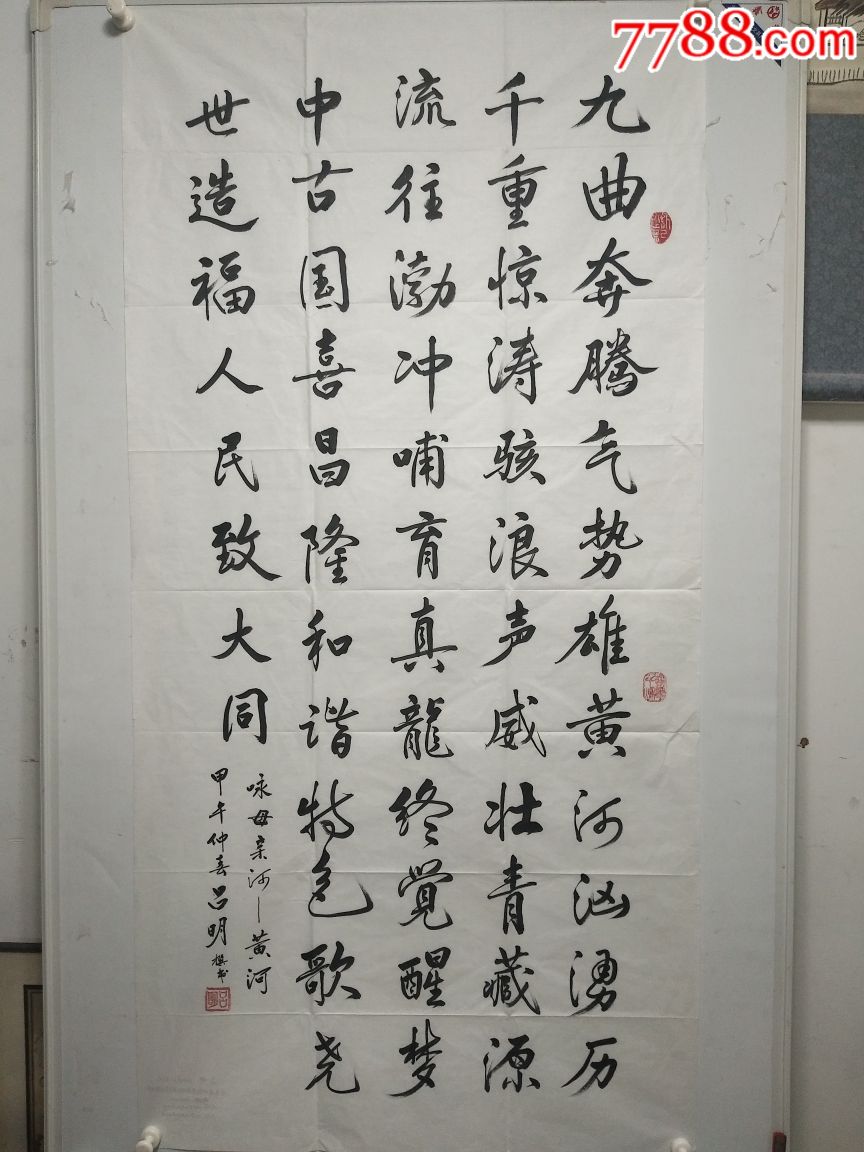 7788.com
九曲奔腾气势雄黄河汹湧历
千重惊涛骇浪声威壮青藏源
流往渤冲哺育真龍终覺醒梦
中古国喜昌隆和谐特色歌尧
世造福人民致大同
咏母亲河—黄河
甲午仲春吕明撰书